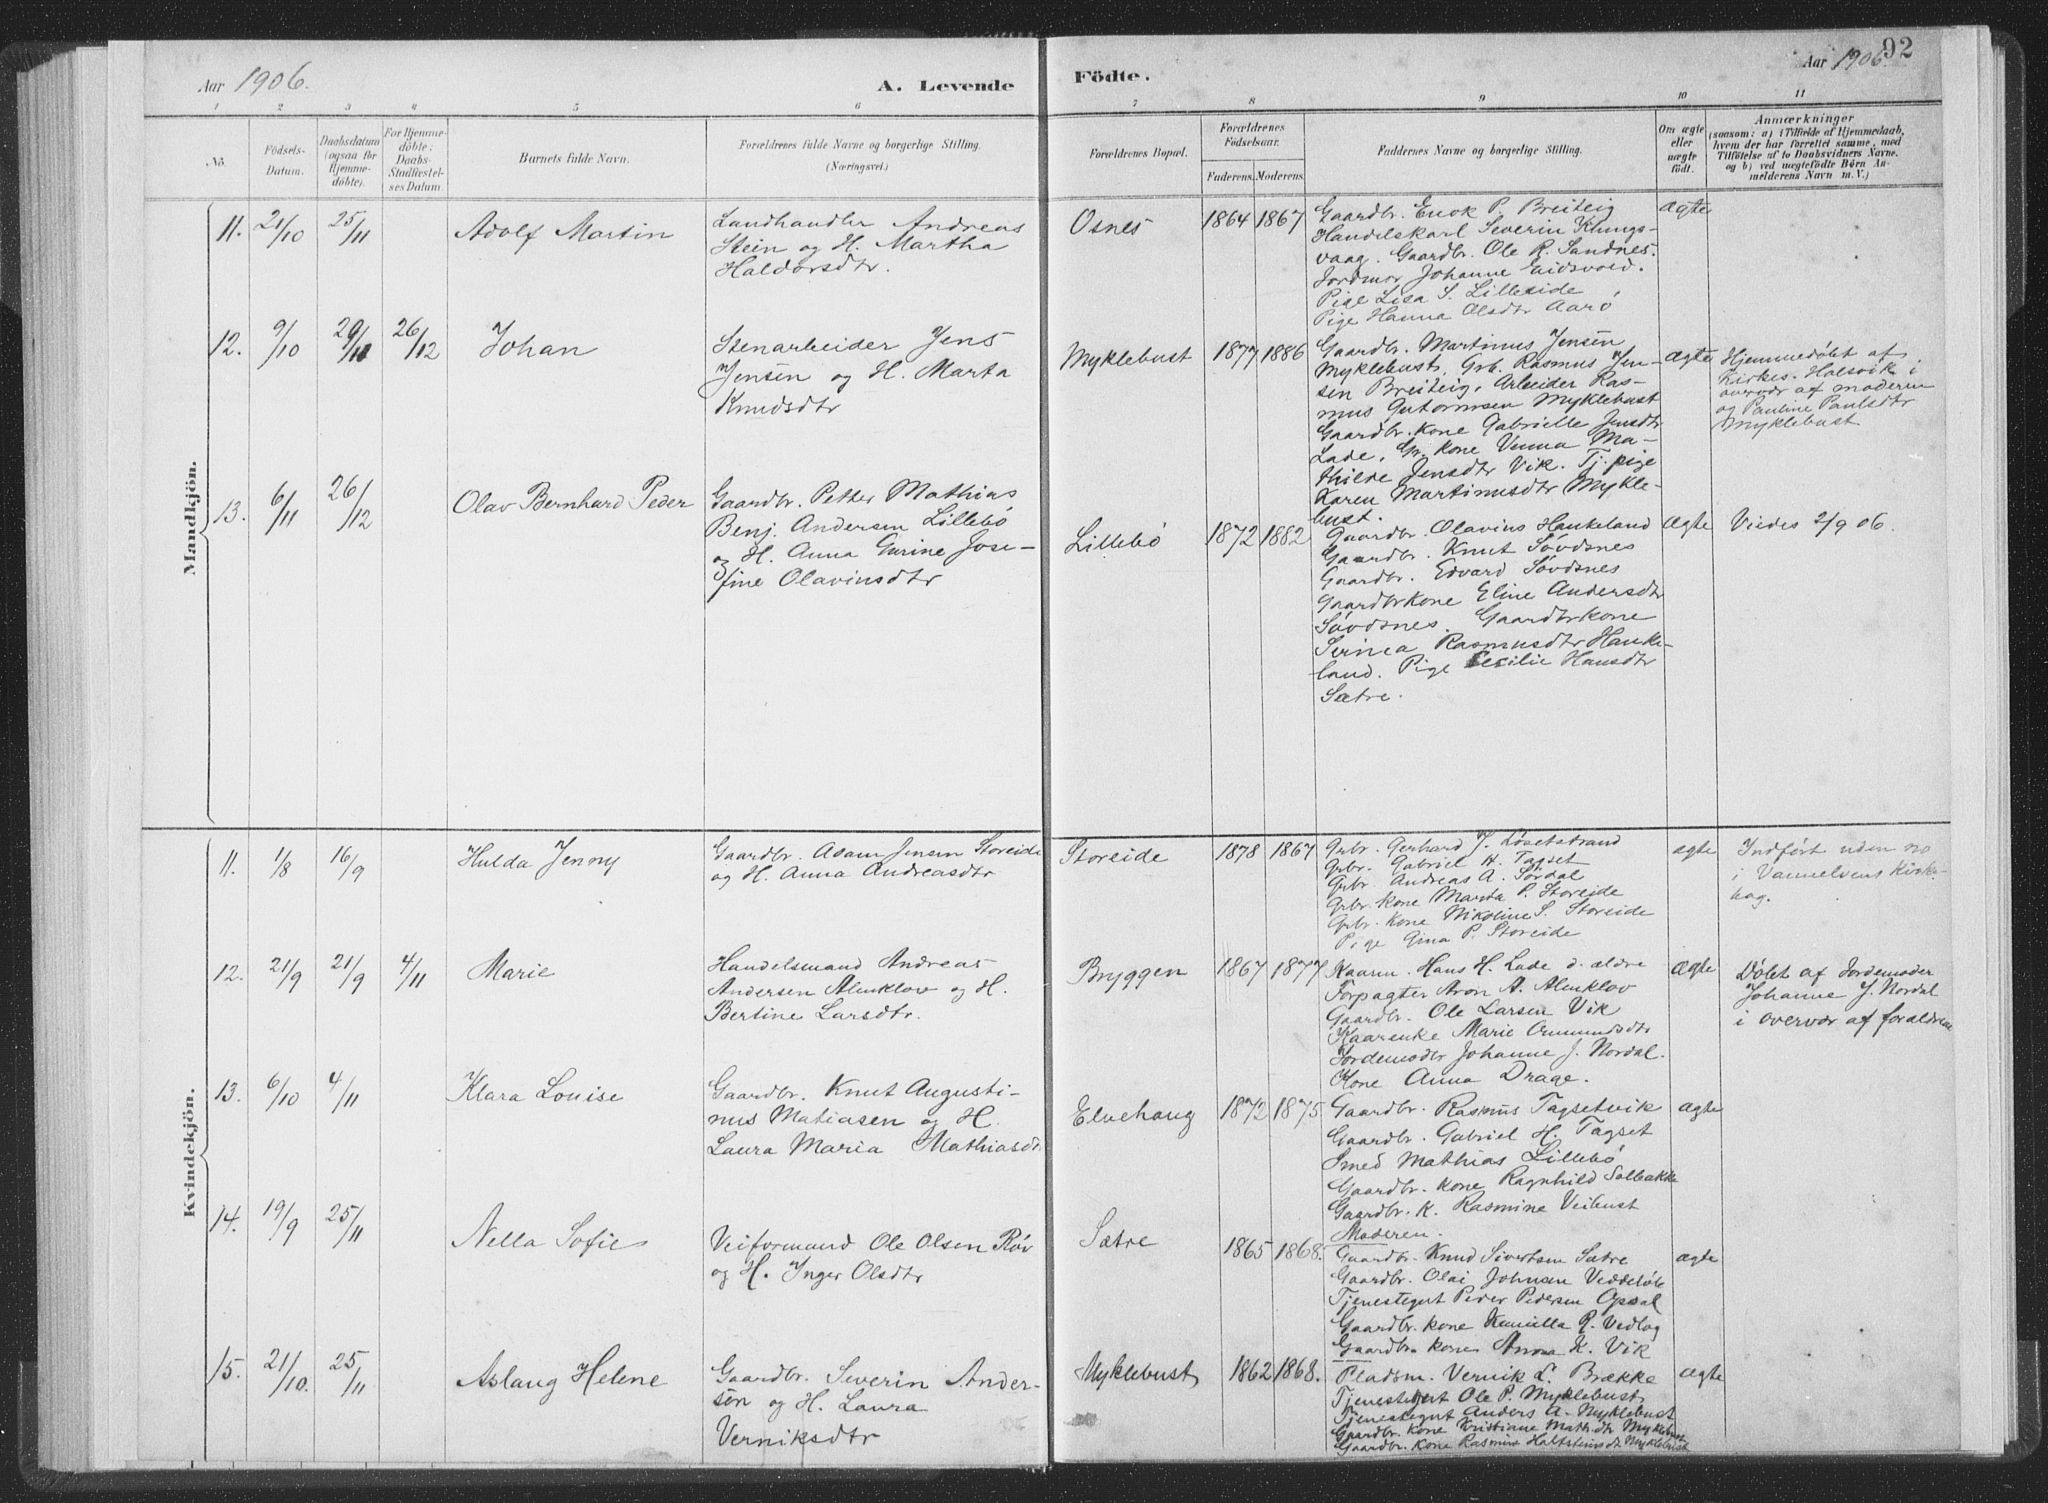 Aar 1906.
A. Levende
Födte.
Aar 1906.
92
1 2 3 4 5 6 7 8 9 10 11
No.
Födsels-
Datum.
Daabsdatum
(ogsaa for
Hjemme-
döbte).
For Hjemme-
döbte:
Daabs-
Stadfæstel-
ses Datum.
Barnets fulde Navn.
Forældrenes fulde Navne og borgerlige Stilling.
(Næringsvei.)
Forældrenes Bopæl.
Forældrenes
Födselsaar.
Faderens. Moderens.
Faddernes Navne og borgerlige Stilling.
Om ægte
eller
uægte
födt.
Anmærkninger
(saasom: a) i Tilfælde af Hjemmedaab,
hvem der har forrettet samme, med
Tilföielse af to Daabsvidners Navne.
og b) ved uægtefödte Börn An-
melderens Navn m. V.)
Mandkjön.
11. 21/10 25/11
Adolf Martin
Landhandler Andreas
Stein og H. Martha
Haldorsdtr.
Osnes
1864 1867
Gaardbr. Enok P. Breiteig
Handelskarl Severin Klungs-
vaag. Gaardbr. Ole R. Sandnes.
Jordmor Johanne Eidsvold.
Pige Lisa S. Lilleeide
Pige Hanna Olsdtr Aarö
ægte
12. 9/10 29/11 26/12
Johan
Stenarbeider Jens
Jensen og H. Marta
Knudsdtr
Myklebust
1877 1886
Gaardbr. Martinus Jensen
Myklebust, Grb. Rasmus Jen-
sen Breiteig, Arbeider Ras-
mus Gutormsen Myklebust
Gaardbr. kone Gabrielle Jensdtr
Lade, Gr. kone Venna Ma-
thilde Jensdtr Vik. Tj. pige
Karen Martinusdtr Mykle-
bust.
ægte
Hjemmedöbt af
Kirkes. Halsvik i
overvær af moderen
og Pauline Paulsdtr
Myklebust.
13. 6/11 26/12
Olav Bernhard Peder
Gaardbr. Petter Mathias
Benj. Andersen Lillebö
og H. Anna Gurine Jose-
fine Olavinsdtr
Lillebö
1872 1882
Gaardbr. Olavius Haukeland
Gaardbr. Knut Sövdsnes
Gaardbr. Edvard Sövdsnes
Gaardbrkone Eline Andersdtr
Sövdsnes. Gaardbrkone
Serinea Rasmusdtr Hauke-
land. Pige Cecilie Hansdtr
Sætre.
ægte
Viedes 2/9 06.
Kvindekjön.
11. 1/8 16/9
Hulda Jenny
Gaardbr. Adam Jensen Storeide
og H. Anna Andreasdtr
Storeide
1878 1867
Grbr. Gerhard J. Løsetstrand
Grbr. Gabriel H. Tagset
Grbr. Andreas A. Sördal
Grbr. kone Marta P. Storeide
Grbr. kone Nikoline S. Storeide
Pige Gina P. Storeide
ægte
Indfört uden no
i Vannelvens Kirke-
bog.
12. 21/9 21/9 4/11
Marie
Handelsmand Andreas
Andersen Almklov og H.
Bertine Larsdtr.
Bryggen
1867 1877
Kaarm. Hans H. Lade d. ældre
Forpagter Aron A. Almklov
Gaardbr. Ole Larsen Vik
Kaarenke Marie Ommundsdtr
Jordemoder Johanne J. Nordal.
Kone Anna Drage.
ægte
Döbt af Jordemoder
Johanne J. Nordal
i overvær af forældrene
13. 6/10 4/11
Klara Louise
Gaardbr. Knut Augusti-
nus Matiasen og H.
Laura Maria Mathiasdtr
Elvehaug
1872 1875
Gaardbr. Rasmus Tagsetvik
Gaardbr. Gabriel H. Tagset
Smed Mathias Lillebö
Gaardbr. kone Ragnhild Solbakke
Gaardbr. K. Rasmine Veibust
Moderen.
ægte
14. 19/9 25/11
Nella Sofie
Veiformand Ole Olsen Röv
og H. Inger Olsdtr
Sætre
1865 1868.
Gaardbr. Knud Sivertsen Sætre
Gaardbr. Olai Johnsen
Tjenestegut Peder Pedersen Opsal
Gaardbr. kone R. Vedlog
Gaardbr. kone Anna K. Vik
ægte
15. 21/10. 25/11
Aslaug Helene
Gaardbr. Severin Ander-
sen og H. Laura
Verniksdtr
Myklebust
1862 1868.
Pladsm. Vernik L. Brække
Tjenestegut Ole P. Myklebust
Tjenestegut Anders A. Myklebust
Gaardbr. kone Kristiane Math.dtr Myklebust
Gaardbr. kone Rasmine Halstensdt Myklebust
ægte